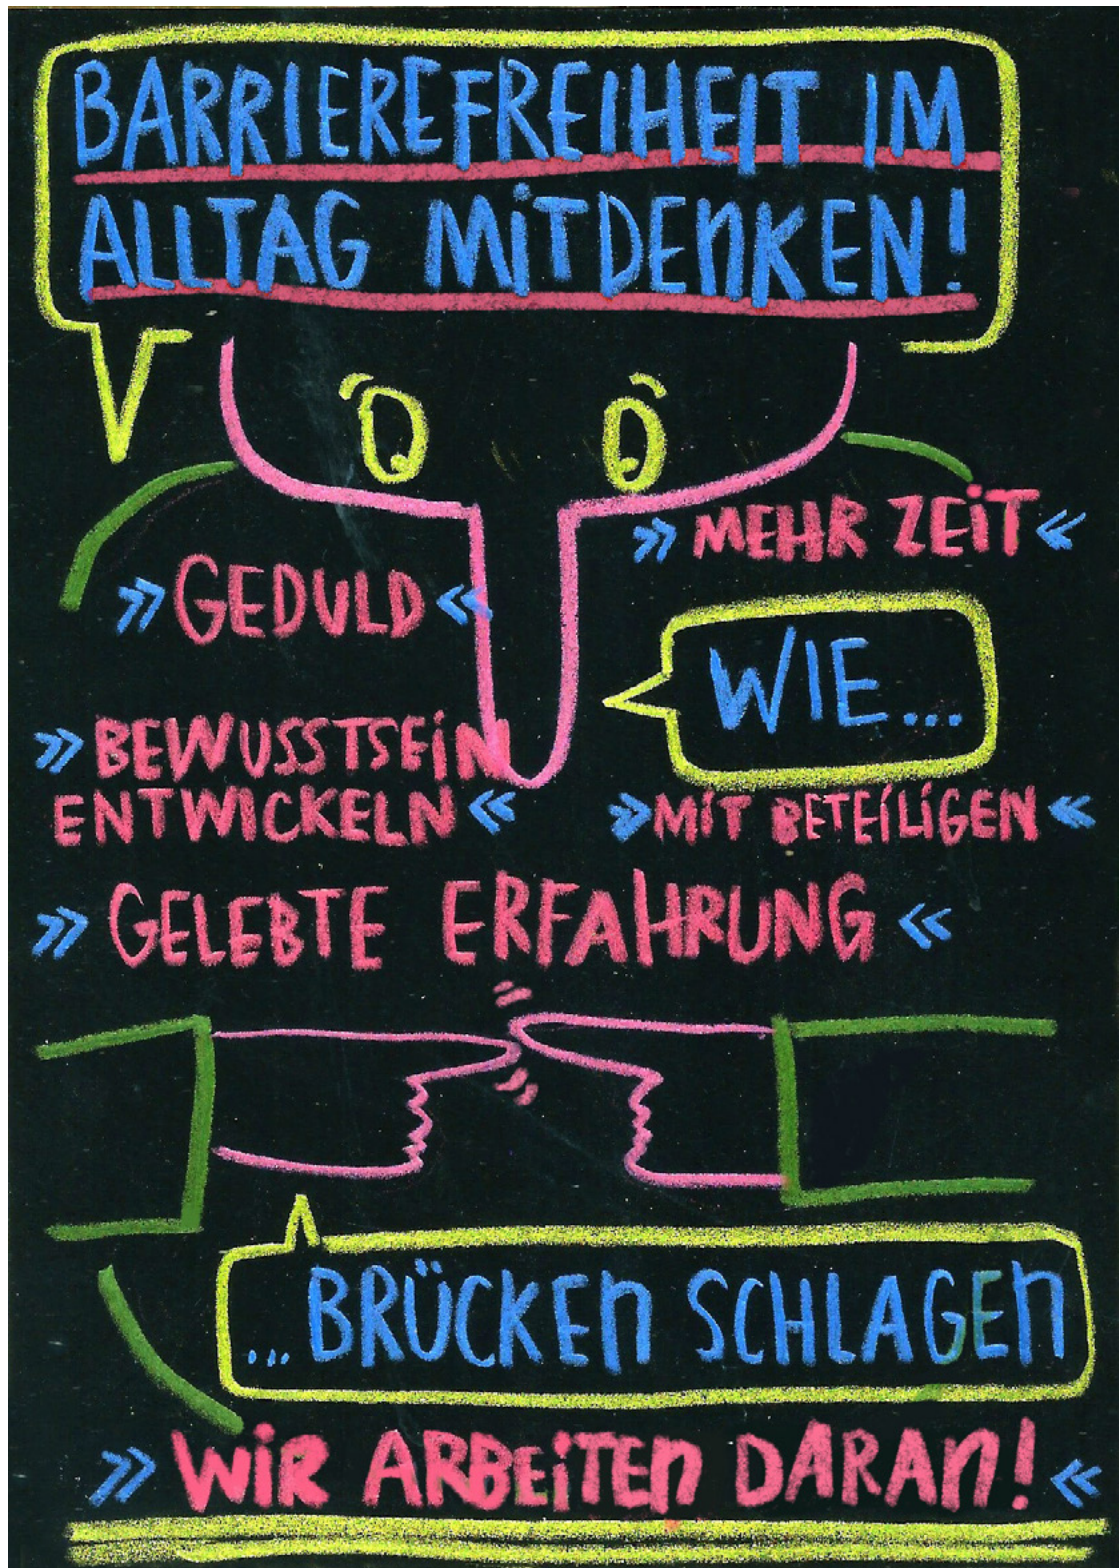 BARRIEREFREIHEIT IM
ALLTAG MITDENKEN!
» MEHR ZEIT «
» GEDULD «
WIE...
» BEWUSSTSEIN
ENTWICKELN «
» MIT BETEILIGEN «
» GELEBTE ERFAHRUNG «
... BRÜCKEN SCHLAGEN
» WIR ARBEITEN DARAN! «